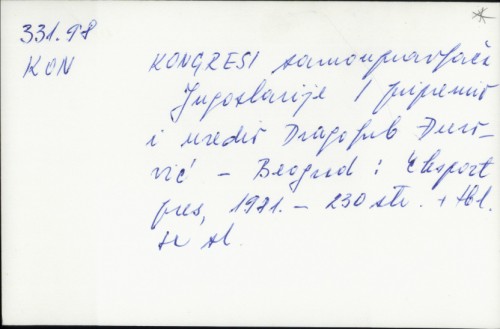 331.98
KON
KONGRESI samoupravljača
Jugoslavije / pripremio
i uredio Dragoljub Đuro-
vić - Beograd : Eksport
pres, 1971. - 230 str. + tbl.
sa sl.